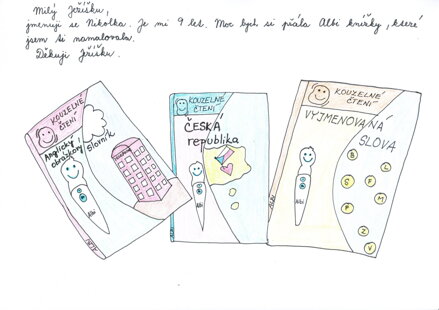 Milý Ježíšku,
jmenuji se Nikolka. Je mi 9 let. Moc bych si přála Albi knížky, které
jsem ti namalovala.
Děkuji Ježíšku.
KOUZELNÉ
ČTENÍ
Anglický
obrázkový
Slovník
Albi
KOUZELNÉ
ČTENÍ
ČESKÁ
republika
Albi
KOUZELNÉ
ČTENÍ
VYJMENOVANÁ
SLOVA
B
L
S
F
M
P
Z
V
Albi